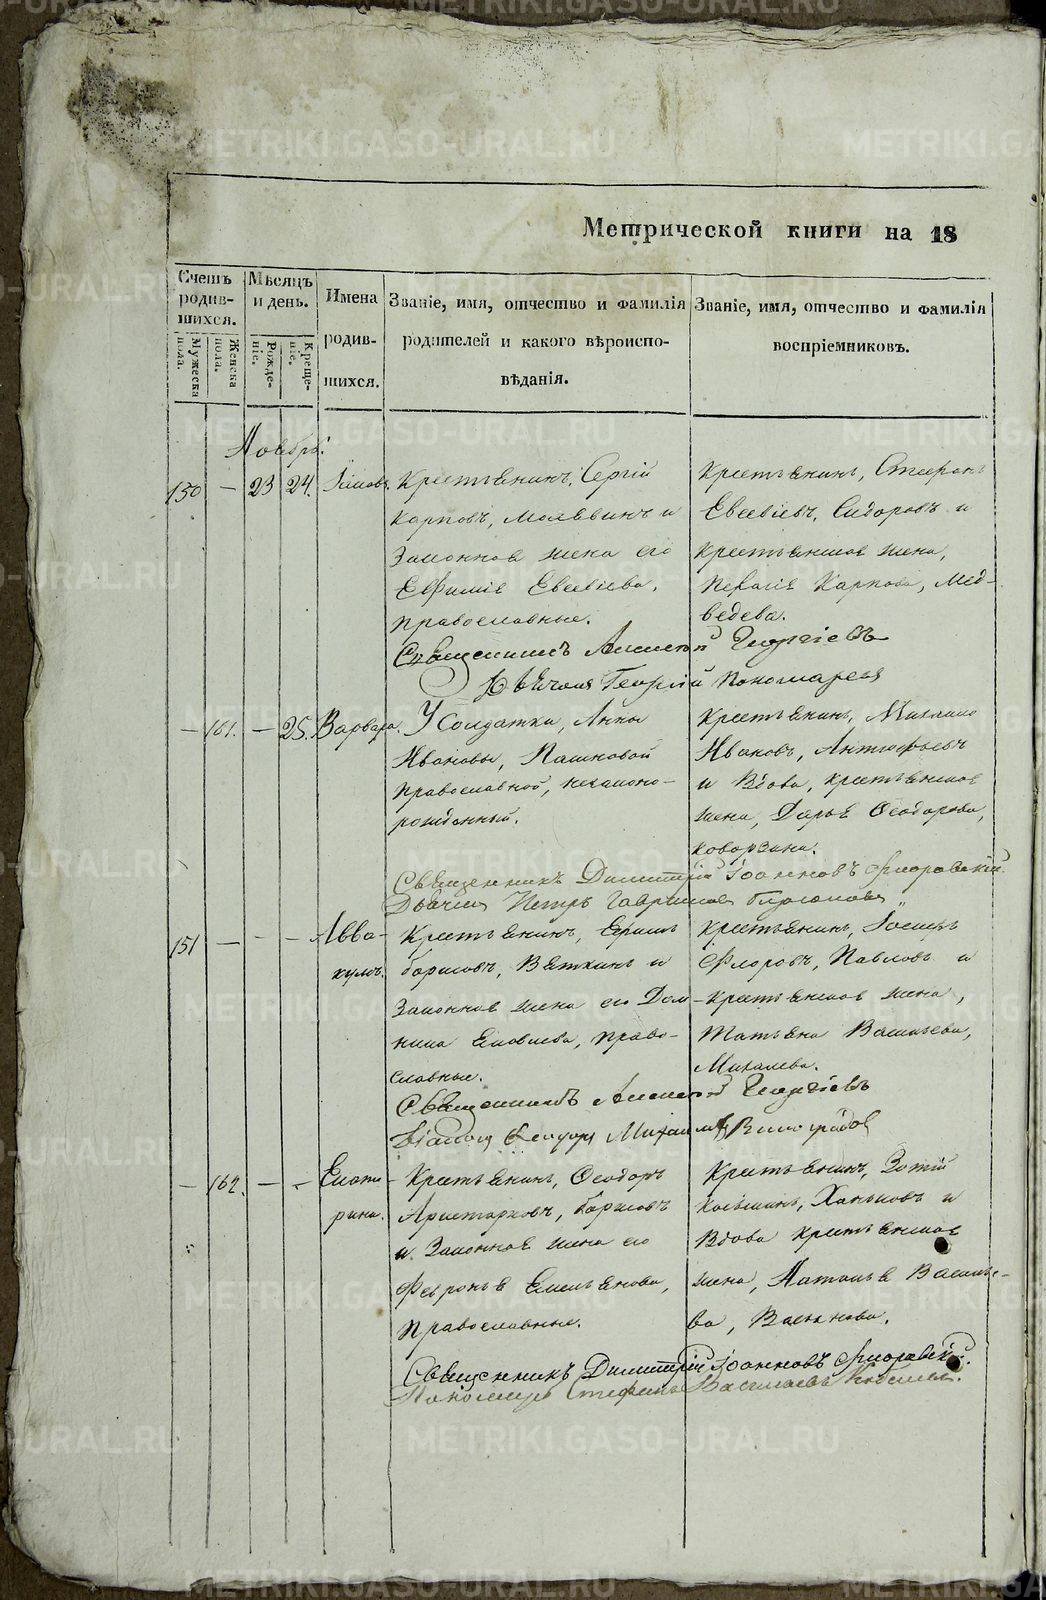 Метрической книги на 18
Счетъ родив-шихся.
Мужеска пола.
Женска пола.
Мѣсяцъ и день.
Рожде-ніе.
Креще-ніе.
Имена
родив-
шихся.
Званіе, имя, отчество и фамилія
родителей и какого вѣроиспо-
вѣданія.
Званіе, имя, отчество и фамилія
воспріемниковъ.
Ноябрь.
150 — 23 24.
Крестьянинъ, Сергій
Карповъ, и
Законная жена его
Евфимія Евсевіева,
православные.
Крестьянинъ, Стефанъ
Евсевіевъ, Сидоровъ и
крестьянская жена,
Пелагія Карпова, Мед-
ведева.
Священникъ Алексій Георгіевъ
Георгій Пономаревъ
— 161. — 25. Варвара.
У Солдатки, Анны
Ивановы, Пашковой
православной, незаконно-
рожденный.
Крестьянинъ, Михаилъ
Ивановъ, Антюфьевъ
и Вдова, крестьянская
жена, Дарья Ѳеодорова,
Священникъ Димитрій Іоанновъ Флоровскій.
Петръ Гавриловъ
151 — - — Авва-
кумъ.
Крестьянинъ,
Борисовъ, Вяткинъ и
Законная жена его Дом-
ника, право-
славные.
Крестьянинъ, Іосифъ
Флоровъ, Павловъ и
крестьянская жена,
Татьяна Васильева,
Михалева.
Священникъ Алексій Георгіевъ
Михаиловъ Виноградов
— 162. — - Екате-
рина.
Крестьянинъ, Ѳеодоръ
Аристарховъ, Борисовъ
и Законная жена его
Февронья Емельянова,
православные.
Крестьянинъ, Зотій
и
Вдова крестьянская
жена, Наталья Василье-
ва,
Священникъ Димитрій Іоанновъ Флоровскій.
Пономарь Стефанъ Васильевъ
METRIKI.GASO-URAL.RU